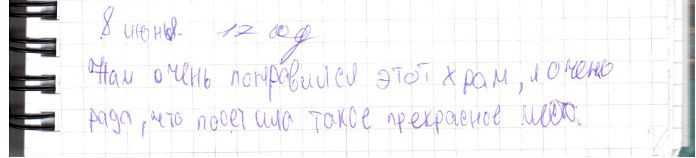 8 июня. 12 год
Нам очень понравился этот храм, я очень
рада, что посетила такое прекрасное место.